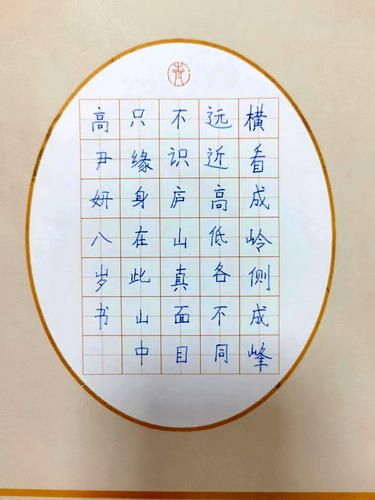 横看成岭侧成峰
远近高低各不同
不识庐山真面目
只缘身在此山中
高尹妍八岁书